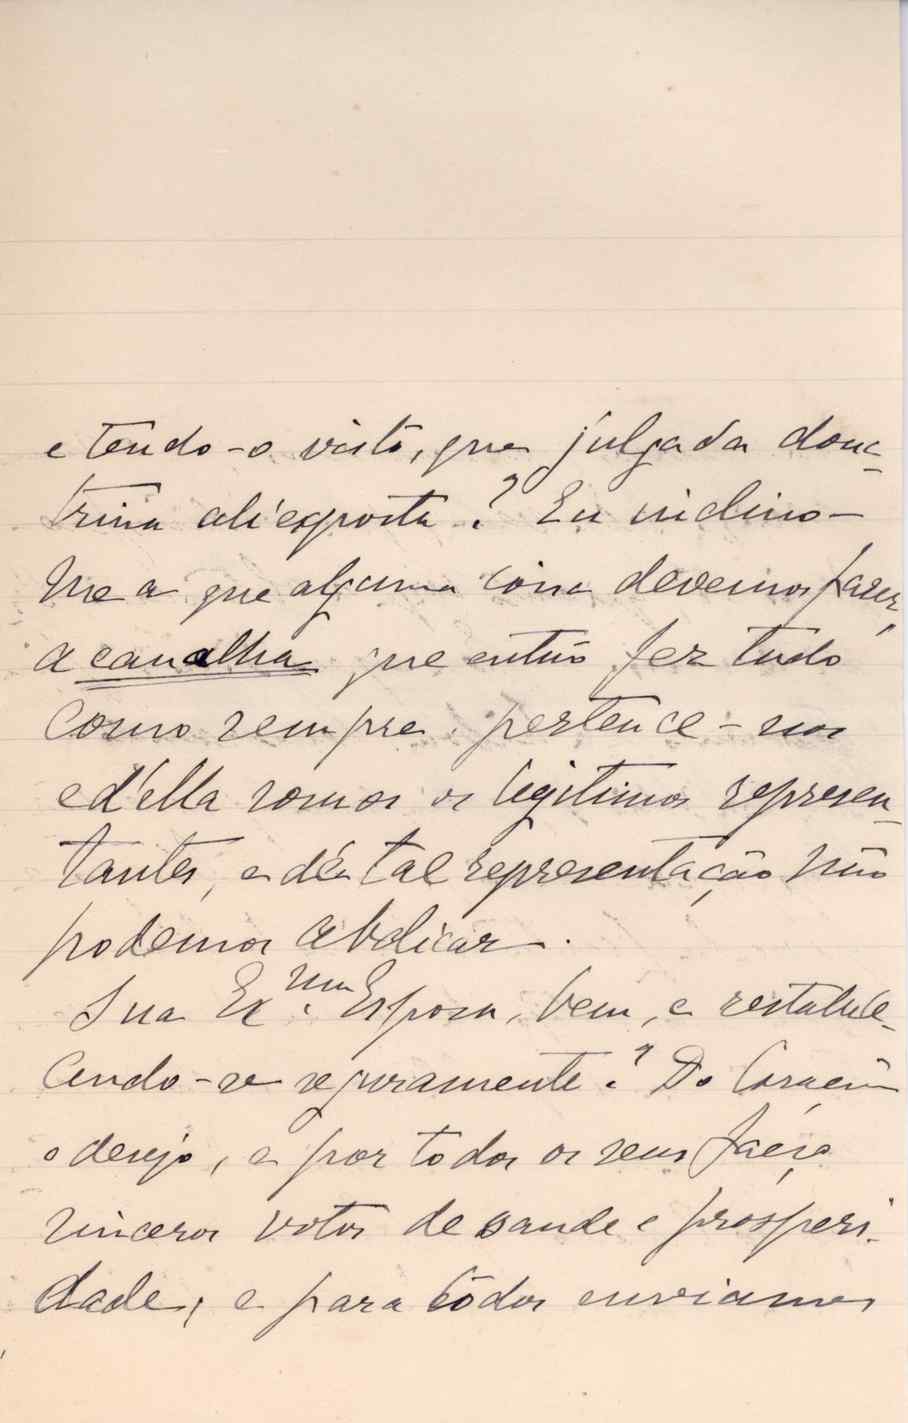 e tendo-o visto, que julga da dou-
trina ali exposta? Eu inclino-
me a que alguma coisa devemos fazer,
a canalha que então fez tudo
como sempre, pertence-nos
e d'ella somos os legitimos represen-
tantes, e de tal representação não
podemos abdicar.
Sua Ex.ma Esposa, bem, e restabele-
cendo-se seguramente? Do Coração
o desejo, e por todos os seus faço
sinceros votos de saude e prosperi-
dade, e para todos enviamos